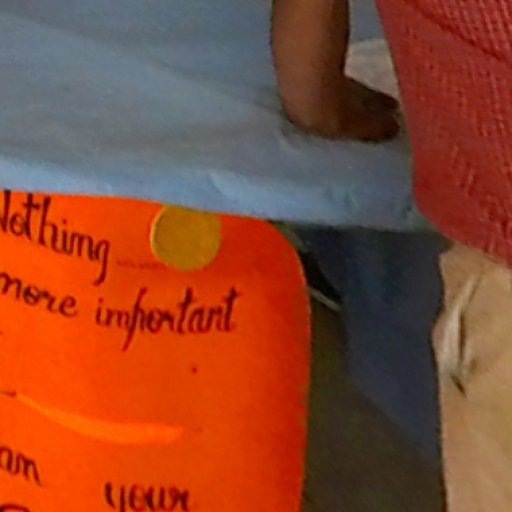 Nothing
more important
your